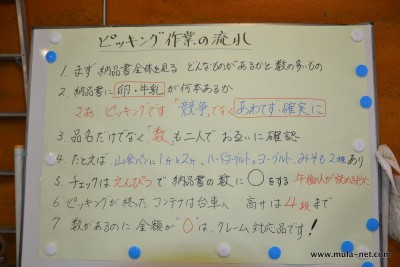 ピッキング作業の流れ
1. まず納品書全体を見る どんなものがあるかと数の多いもの
2. 納品書に卵・牛乳が何本あるか
さあ ピッキングです 「競争」でなく あわてず・確実に
3. 品名だけでなく「数」も二人でお互いに確認
4. たとえば 山食パンに1ヶと2ヶ、ハードヨーグルトとヨーグルト、みそも2種あり
5. チェックはえんぴつで納品書の数に○をする 午後の人が
6. ピッキングが終ったコンテナは台車へ 高さは4段まで
7. 数があるのに金額が"0"は、クレーム対応品です!
www.mula-net.com